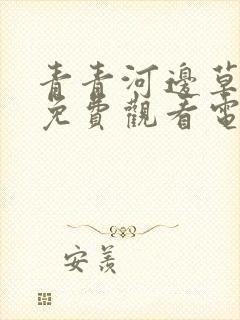 青青河邊草
免費觀看電
安羨